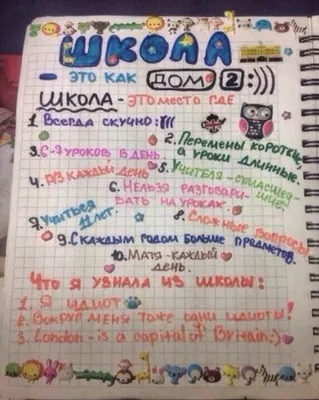 ШКОЛА
- ЭТО КАК ДОМ 2:)))
ШКОЛА - ЭТО МЕСТО ГДЕ
1. Всегда скучно:(((
2. Перемены короткие,
а уроки длинные.
3. С-Я уроков в день.
4. Д/З каждый день
5. Учителя - сумасшед-
шие.
6. Нельзя разговари-
вать на уроках.
7. Учиться
11 лет.
8. Сложные вопросы
9. С каждым годом больше предметов.
10. Матя - каждый
день.
Что я узнала из школы:
1. Я идиот
2. Вокруг меня тоже одни идиоты!
3. London - is a capital of Britain:)